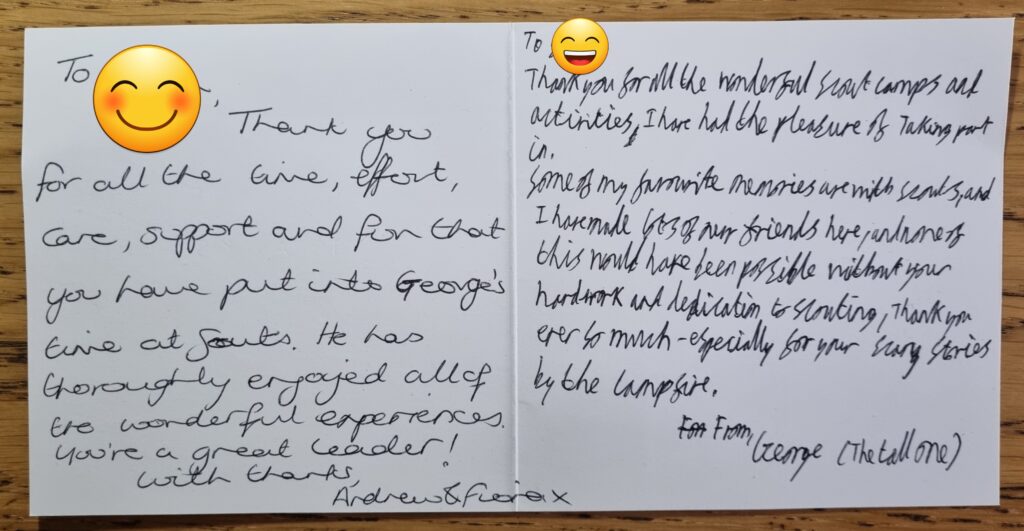 To
Thank you
for all the time, effort,
care, support and fun that
you have put into George's
time at Scouts. He has
thoroughly enjoyed all of
the wonderful experiences.
You're a great leader!
With thanks,
Andrew & Fiona x
To
Thank you for all the wonderful scout camps and
activities, I have had the pleasure of Taking part
in.
Some of my favourite memories are with scouts, and
I have made lots of new friends here, and none of
this would have been possible without your
hardwork and dedication to scouting, Thank you
ever so much - especially for your scary stories
by the campfire.
From, George (The tall one)